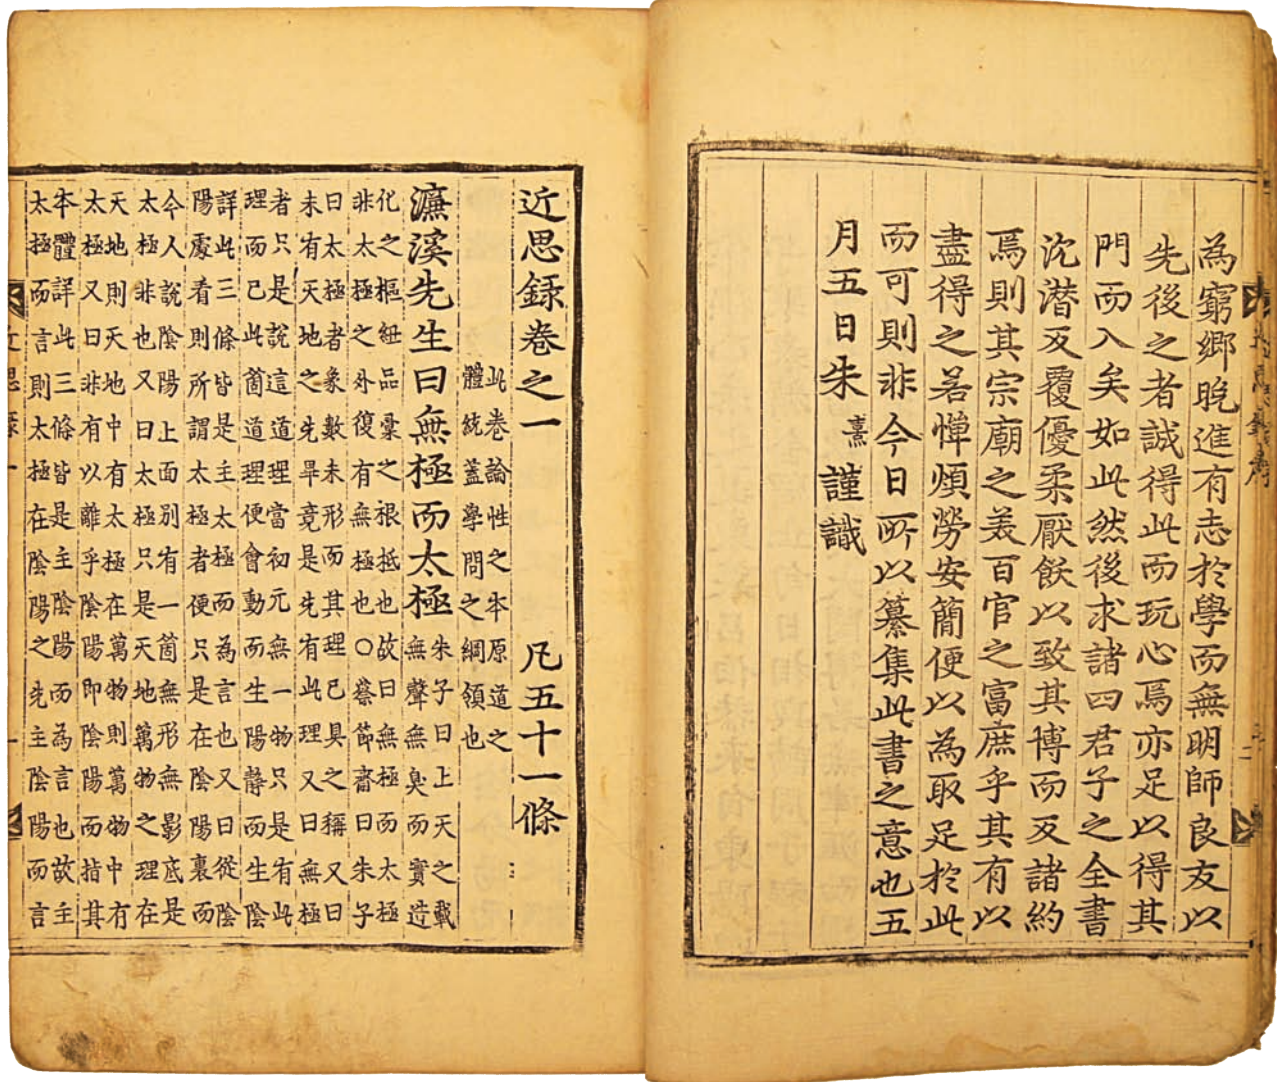 為窮鄉晚進有志於學而無明師良友以
先後之者誠得此而玩心焉亦足以得其
門而入矣如此然後求諸四君子之全書
沈潜反覆優柔厭飫以致其博而反諸約
焉則其宗廟之美百官之富庶乎其有以
盡得之若憚煩勞安簡便以為取足於此
而可則非今日所以纂集此書之意也五
月五日朱熹謹識
近思錄卷之一 凡五十一條
此卷論性之本原道之
體統蓋學問之綱領也
濂溪先生曰無極而太極
朱子曰上天之載
無聲無臭而實造
化之樞紐品彙之根柢也故曰無極而太極
非太極之外復有無極也○蔡節齋曰朱子
曰太極者象數未形而其理已具之稱又曰
未有天地之先畢竟是先有此理又曰無極
者只是說這道理當初元無一物只是有此
理而已此箇道理便會動而生陽靜而生陰
詳此三條皆是主太極而為言也又曰從陰
陽處看則所謂太極者便只是在陰陽裏而
今人說陰陽上面別有一箇無形無影底是
太極非也又曰太極只是天地萬物之理在
天地則天地中有太極在萬物則萬物中有
太極又曰非有以離乎陰陽即陰陽而指其
本體詳此三條皆是主陰陽而為言也故主
太極而言則太極在陰陽之先主陰陽而言